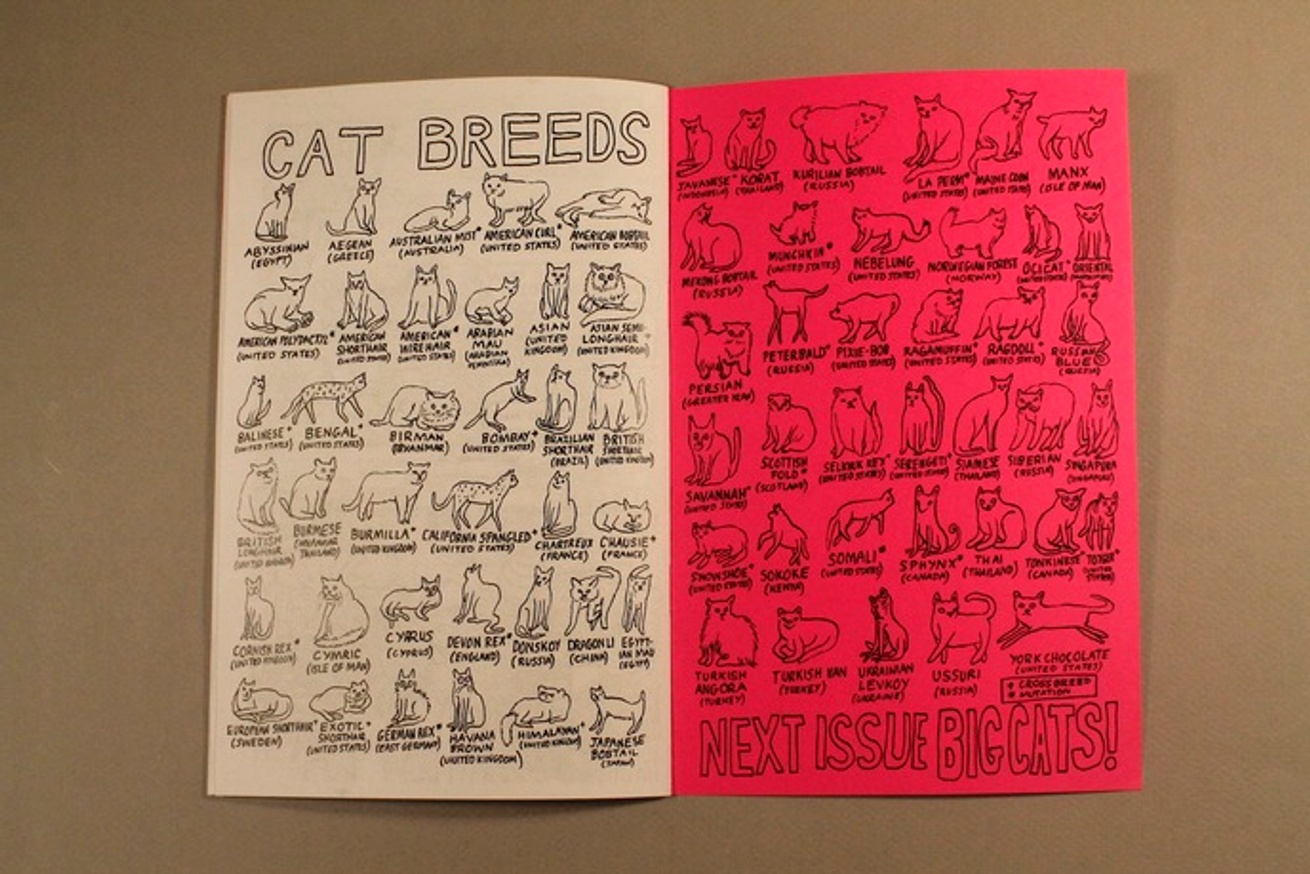 CAT BREEDS
ABYSSINIAN
(EGYPT)
AEGEAN
(GREECE)
AUSTRALIAN MIST*
(AUSTRALIA)
AMERICAN CURL*
(UNITED STATES)
AMERICAN BOBTAIL
(UNITED STATES)
AMERICAN POLYDACTYL*
(UNITED STATES)
AMERICAN
SHORTHAIR
(UNITED STATES)
AMERICAN*
WIREHAIR
(UNITED STATES)
ARABIAN
MAU
(ARABIAN
PENINSULA)
ASIAN
(UNITED
KINGDOM)
ASIAN SEMI-
LONGHAIR+
(UNITED KINGDOM)
BALINESE+
(UNITED STATES)
BENGAL+
(UNITED STATES)
BIRMAN
(MYANMAR)
BOMBAY+
(UNITED STATES)
BRAZILIAN
SHORTHAIR
(BRAZIL)
BRITISH
SHORTHAIR
(UNITED KINGDOM)
BRITISH
LONGHAIR
(UNITED KINGDOM)
BURMESE
(MYANMAR
THAILAND)
BURMILLA+
(UNITED KINGDOM)
CALIFORNIA SPANGLED+
(UNITED STATES)
CHARTREUX
(FRANCE)
CHAUSIE+
(FRANCE)
CORNISH REX*
(UNITED KINGDOM)
CYMRIC
(ISLE OF MAN)
CYPRUS
(CYPRUS)
DEVON REX*
(ENGLAND)
DONSKOY
(RUSSIA)
DRAGON LI
(CHINA)
EGYPT-
IAN MAU
(EGYPT)
EUROPEAN SHORTHAIR*
(SWEDEN)
EXOTIC+
SHORTHAIR
(UNITED STATES)
GERMAN REX*
(EAST GERMANY)
HAVANA
BROWN
(UNITED KINGDOM)
HIMALAYAN+
(UNITED KINGDOM)
JAPANESE
BOBTAIL
(JAPAN)
JAVANESE+
(INDONESIA)
KORAT
(THAILAND)
KURILIAN BOBTAIL
(RUSSIA)
LA PERM*
(UNITED STATES)
MAINE COON
(UNITED STATES)
MANX
(ISLE OF MAN)
MEKONG BOBTAIL
(RUSSIA)
MUNCHKIN*
(UNITED STATES)
NEBELUNG
(UNITED STATES)
NORWEGIAN FOREST
(NORWAY)
OCICAT+
(UNITED STATES)
ORIENTAL
PERSIAN
(GREATER IRAN)
PETERBALD+
(RUSSIA)
PIXIE-BOB
(UNITED STATES)
RAGAMUFFIN+
(UNITED STATES)
RAGDOLL+
(UNITED STATES)
RUSSIAN
BLUE
(RUSSIA)
SAVANNAH+
(UNITED STATES)
SCOTTISH
FOLD*
(SCOTLAND)
SELKIRK REX*
(UNITED STATES)
SERENGETI+
(UNITED STATES)
SIAMESE
(THAILAND)
SIBERIAN
(RUSSIA)
SINGAPURA
(SINGAPORE)
SNOWSHOE+
(UNITED STATES)
SOKOKE
(KENYA)
SOMALI*
(UNITED STATES)
SPHYNX*
(CANADA)
THAI
(THAILAND)
TONKINESE+
(CANADA)
TOYGER+
(UNITED
STATES)
TURKISH
ANGORA
(TURKEY)
TURKISH VAN
(TURKEY)
UKRAINIAN
LEVKOY
(UKRAINE)
USSURI
(RUSSIA)
YORK CHOCOLATE
(UNITED STATES)
+ CROSS BREED
* MUTATION
NEXT ISSUE BIG CATS!